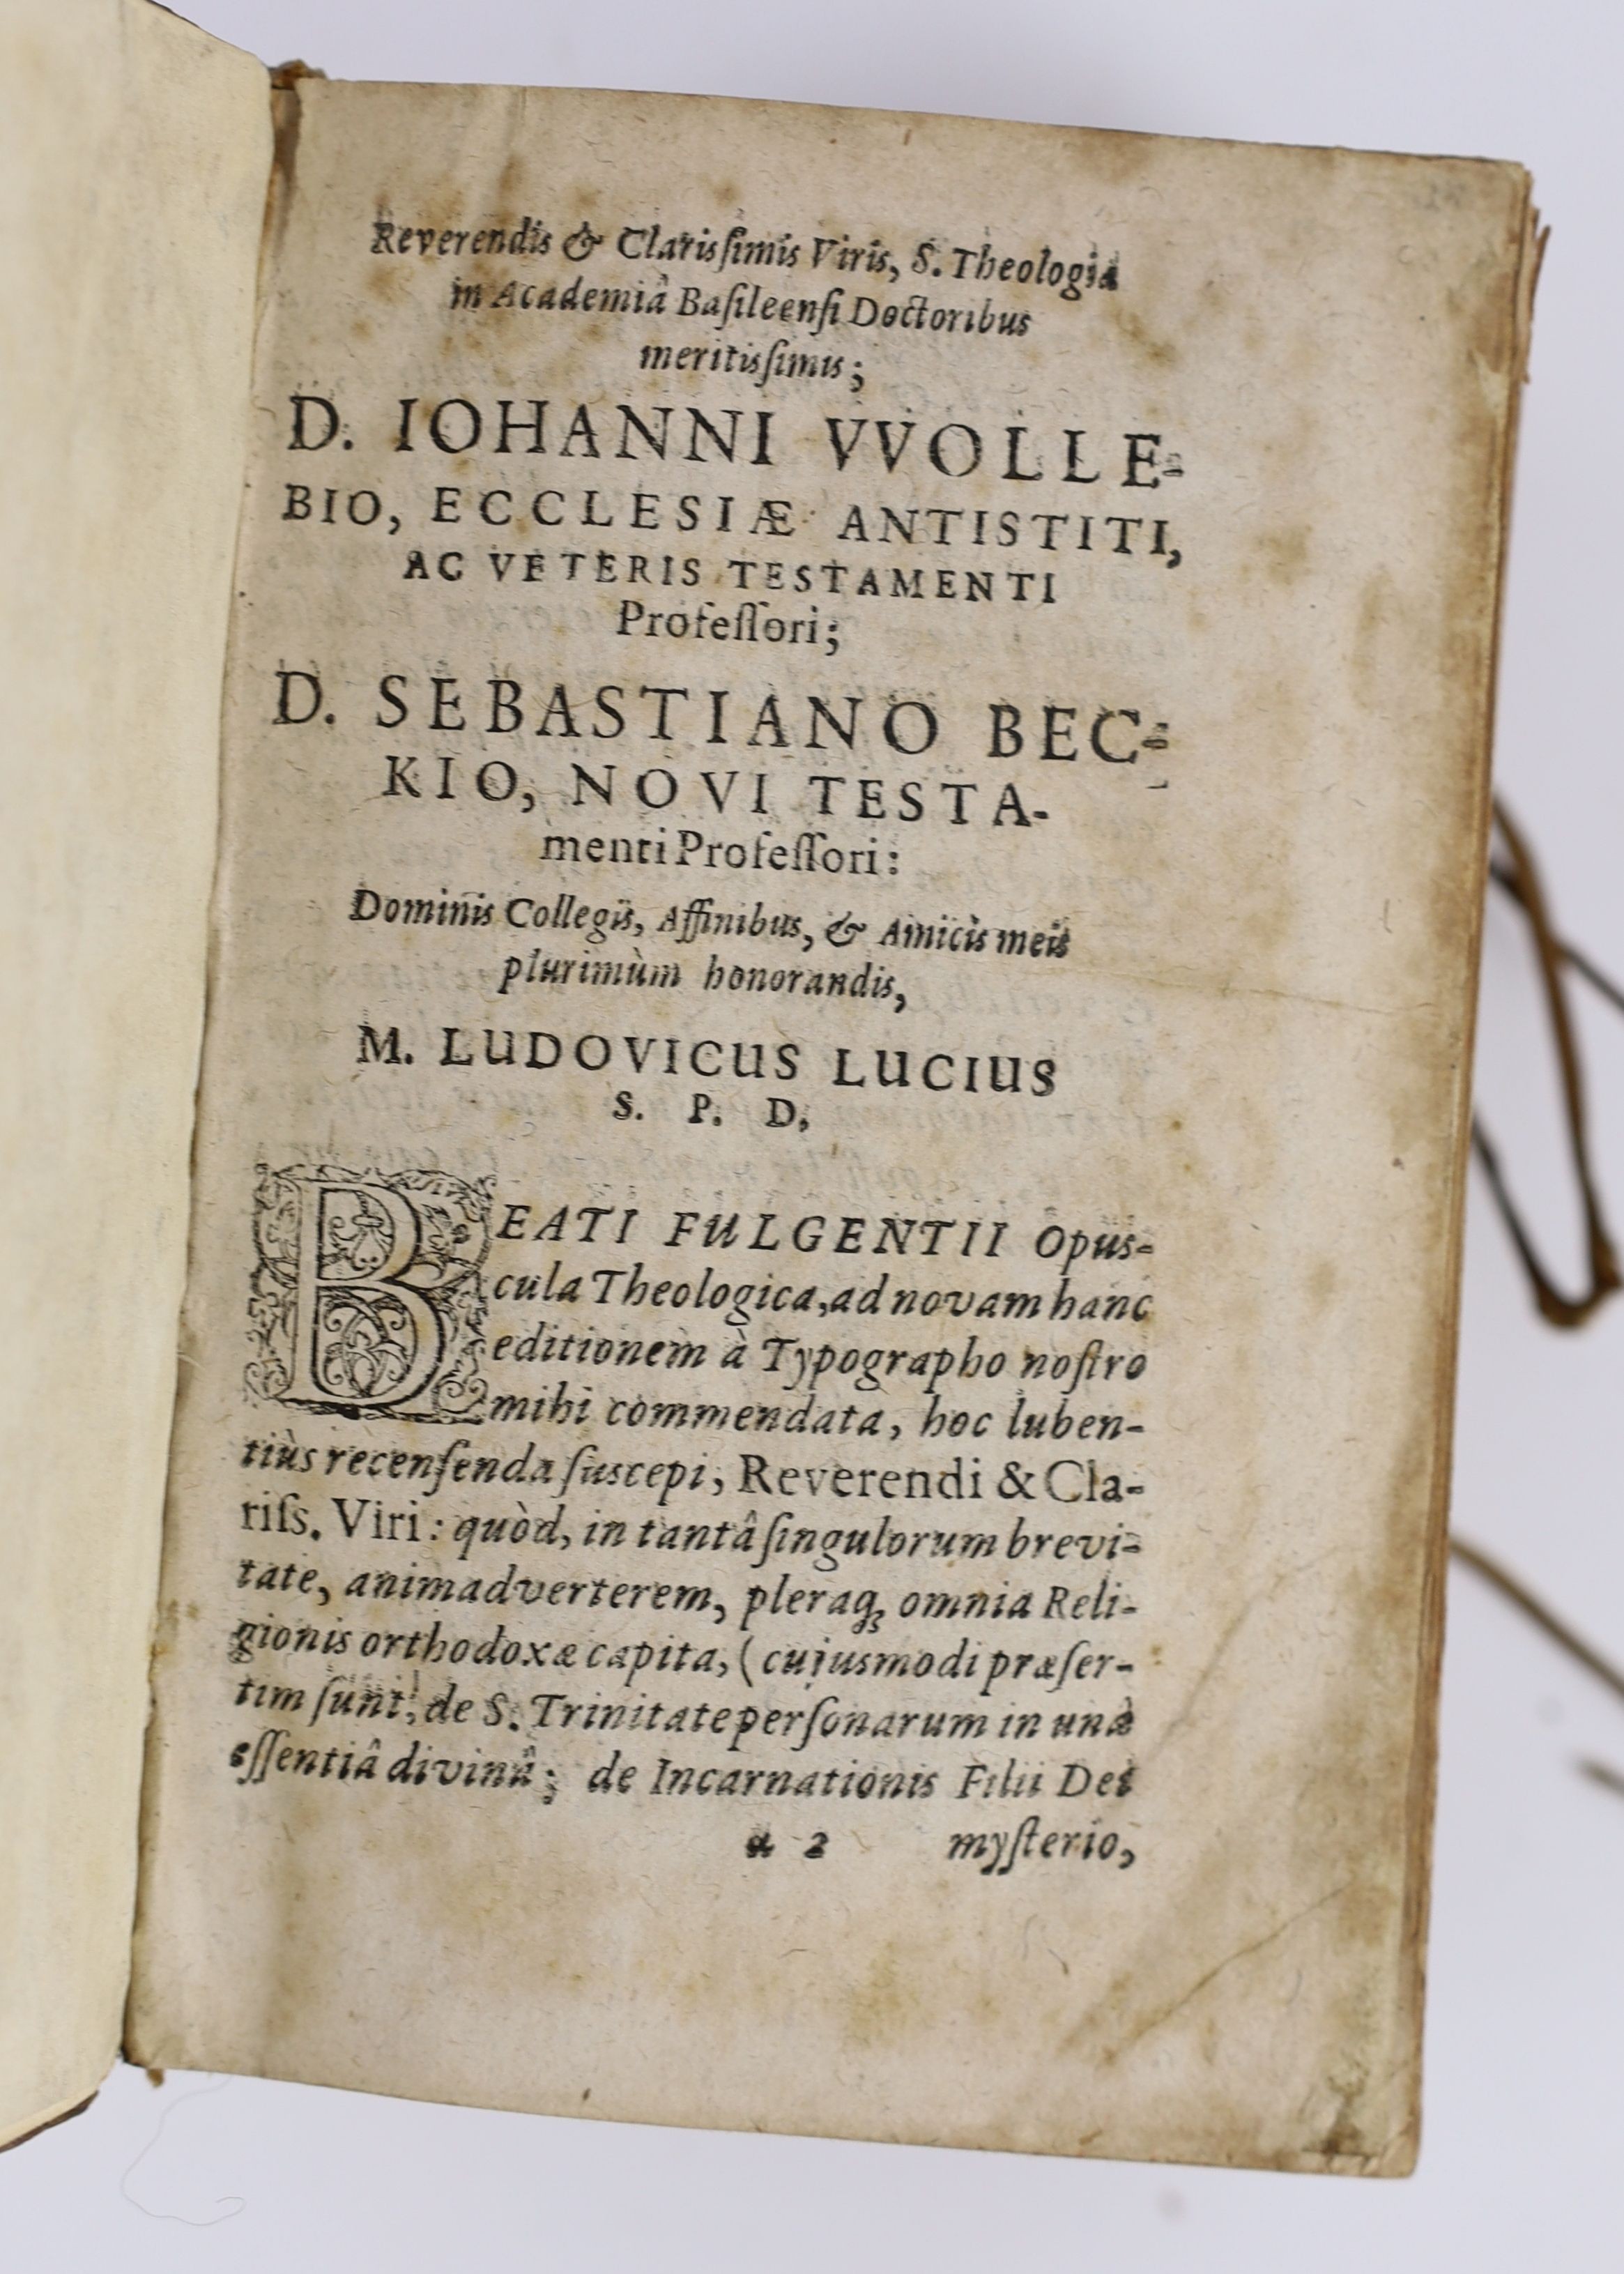 Reverendis & Clarisſimis Viris, S. Theologiæ
in Academiâ Baſileenſi Doctoribus
meritisſimis;
D. IOHANNI VVOLLE-
BIO, ECCLESIÆ ANTISTITI,
AC VETERIS TESTAMENTI
Profeſſori;
D. SEBASTIANO BEC-
KIO, NOVI TESTA-
menti Profeſſori:
Dominis Collegis, Affinibus, & Amicis meis
plurimùm honorandis,
M. LUDOVICUS LUCIUS
S. P. D.
BEATI FULGENTII Opus-
cula Theologica, ad novam hanc
editionem à Typographo noſtro
mihi commendata, hoc luben-
tiùs recenſenda ſuscepi, Reverendi & Cla-
riſs. Viri: quòd, in tantâ ſingulorum brevi-
tate, animadverterem, pleraq; omnia Reli-
gionis orthodoxæ capita, (cujusmodi præſer-
tim ſunt, de S. Trinitate perſonarum in unâ
eſſentiâ divinâ; de Incarnationis Filii Dei
a 2 myſterio,